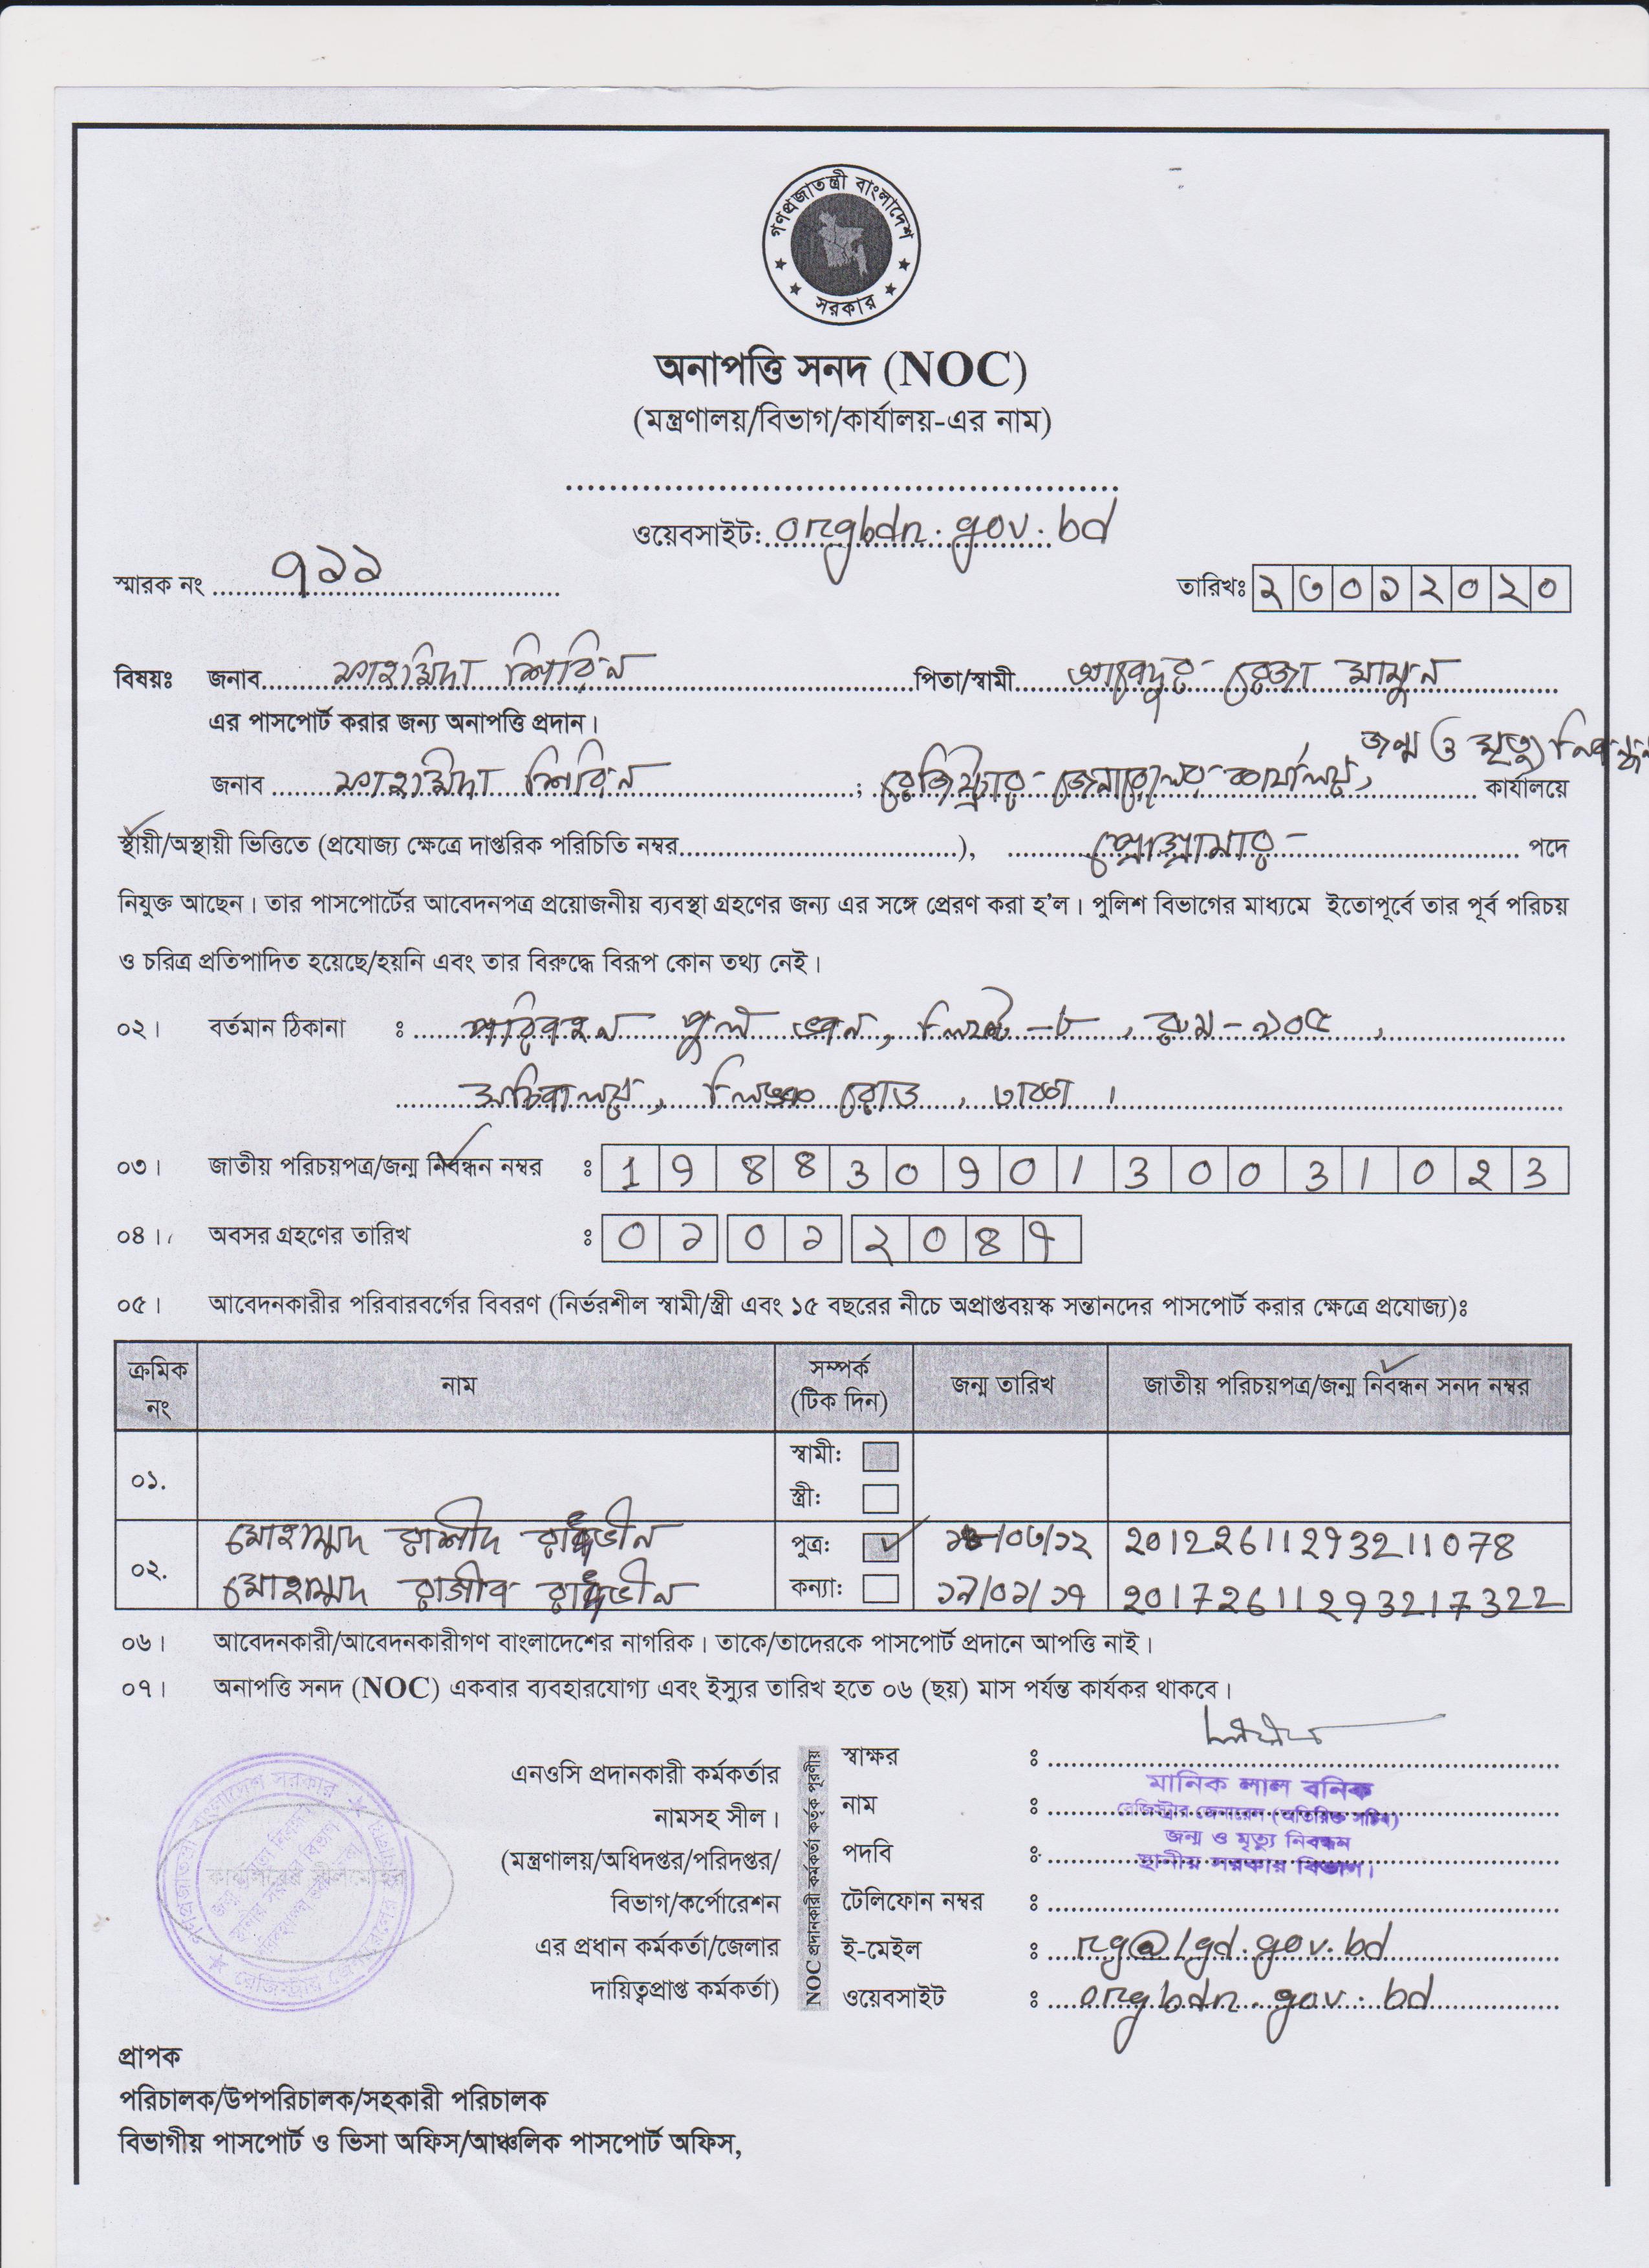 গণপ্রজাতন্ত্রী বাংলাদেশ
সরকার
অনাপত্তি সনদ (NOC)
(মন্ত্রণালয়/বিভাগ/কার্যালয়-এর নাম)
ওয়েবসাইট: orgbdn.gov.bd
স্মারক নং ৭১১
তারিখঃ ২৩০১২০২০
বিষয়ঃ জনাব ফাহমিদা শিরিন পিতা/স্বামী রেজা মামুন
এর পাসপোর্ট করার জন্য অনাপত্তি প্রদান।
জন্ম ও মৃত্যু নিবন্ধন
জনাব ফাহমিদা শিরিন ; রেজিস্ট্রার জেনারেলের কার্যালয়, কার্যালয়ে
স্থায়ী/অস্থায়ী ভিত্তিতে (প্রযোজ্য ক্ষেত্রে দাপ্তরিক পরিচিতি নম্বর), প্রোগ্রামার পদে
নিযুক্ত আছেন। তার পাসপোর্টের আবেদনপত্র প্রয়োজনীয় ব্যবস্থা গ্রহণের জন্য এর সঙ্গে প্রেরণ করা হ'ল। পুলিশ বিভাগের মাধ্যমে ইতোপূর্বে তার পূর্ব পরিচয়
ও চরিত্র প্রতিপাদিত হয়েছে/হয়নি এবং তার বিরুদ্ধে বিরূপ কোন তথ্য নেই।
০২। বর্তমান ঠিকানা ঃ পরিবহন পুল ভবন, লিফট-৮, রুম-৯০৫,
সচিবালয়, লিংক রোড, ঢাকা।
০৩। জাতীয় পরিচয়পত্র/জন্ম নিবন্ধন নম্বর ঃ 19883090130031023
০৪। অবসর গ্রহণের তারিখ ঃ ০১ ০১ ২০৪৭
০৫। আবেদনকারীর পরিবারবর্গের বিবরণ (নির্ভরশীল স্বামী/স্ত্রী এবং ১৫ বছরের নীচে অপ্রাপ্তবয়স্ক সন্তানদের পাসপোর্ট করার ক্ষেত্রে প্রযোজ্য)ঃ
ক্রমিক নং নাম সম্পর্ক (টিক দিন) জন্ম তারিখ জাতীয় পরিচয়পত্র/জন্ম নিবন্ধন সনদ নম্বর
০১. স্বামী:
স্ত্রী:
০২. মোহাম্মদ রাশীদ পুত্র: ✓ /০৩/১২ 20122611293211078
মোহাম্মদ রাজীব কন্যা: ১৯/০১/১৭ 20172611293217322
০৬। আবেদনকারী/আবেদনকারীগণ বাংলাদেশের নাগরিক। তাকে/তাদেরকে পাসপোর্ট প্রদানে আপত্তি নাই।
০৭। অনাপত্তি সনদ (NOC) একবার ব্যবহারযোগ্য এবং ইস্যুর তারিখ হতে ০৬ (ছয়) মাস পর্যন্ত কার্যকর থাকবে।
এনওসি প্রদানকারী কর্মকর্তার
নামসহ সীল।
(মন্ত্রণালয়/অধিদপ্তর/পরিদপ্তর/
বিভাগ/কর্পোরেশন
এর প্রধান কর্মকর্তা/জেলার
দায়িত্বপ্রাপ্ত কর্মকর্তা)
NOC প্রদানকারী কর্মকর্তা কর্তৃক পূরণীয়
স্বাক্ষর ঃ
নাম ঃ মানিক লাল বনিক
রেজিস্ট্রার জেনারেল (অতিরিক্ত সচিব)
পদবি ঃ জন্ম ও মৃত্যু নিবন্ধন
স্থানীয় সরকার বিভাগ।
টেলিফোন নম্বর ঃ
ই-মেইল ঃ rg@lgd.gov.bd
ওয়েবসাইট ঃ orgbdn.gov.bd
কার্যালয়ের সীলমোহর
গণপ্রজাতন্ত্রী বাংলাদেশ সরকার
প্রাপক
পরিচালক/উপপরিচালক/সহকারী পরিচালক
বিভাগীয় পাসপোর্ট ও ভিসা অফিস/আঞ্চলিক পাসপোর্ট অফিস,